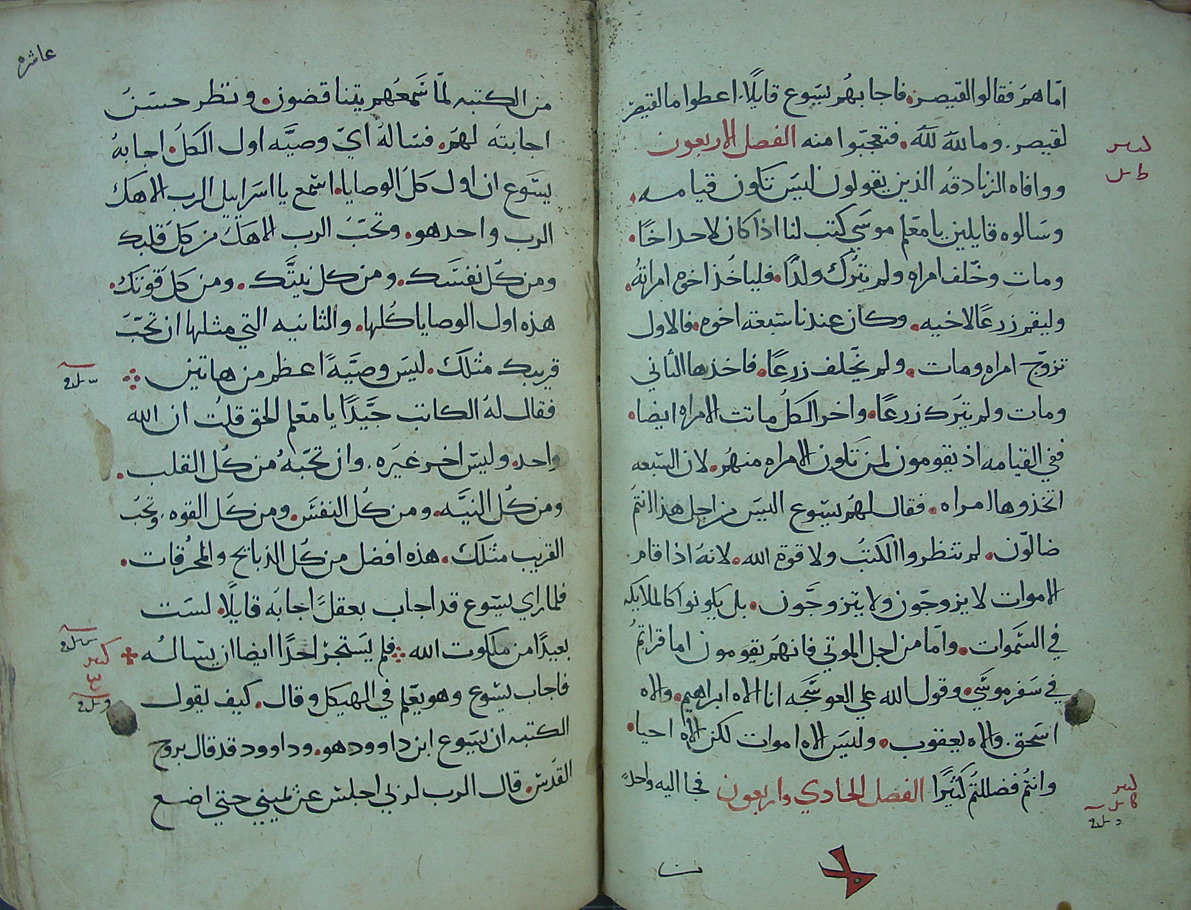 اما هم فقالوا لقيصر. فاجابهم يسوع قايلًا. اعطوا ما لقيصر
لقيصر. وما لله لله. فتعجبوا منه الفصل الاربعون
ووافاه الزنادقه الذين يقولون ليس تكون قيامه.
وسالوه قايلين يا معلم موسي كتب لنا اذا كان لاحد اخًا.
ومات وخلف امراه ولم يترك ولدًا. فلياخذ اخوه امراته.
وليقم زرعًا لاخيه. وكان عندنا سبعه اخوه. فالاول
تزوج امراه ومات. ولم يخلف زرعًا. فاخذها الثاني
ومات ولم يترك زرعًا. واخر الكل ماتت الامراه ايضا.
ففي القيامه اذ يقومون لمن تكون الامراه منهم. لان السبعه
اتخذوها امراه. فقال لهم يسوع اليس من اجل هذا انتم
ضالون. لم تنظروا الكتب ولا قوة الله. لانه اذا قام
الاموات لا يزوجون ولا يتزوجون. بل يكونوا كالملايكه
في السموات. واما من اجل الموتي فانهم يقومون اما قراتم
في سفر موسي. وقول الله علي العوسجه انا الاه ابراهيم. والاه
اسحق. والاه يعقوب. وليس الاه اموات لكن الاه احيا.
وانتم فضللتم كثيرًا الفصل الحادي واربعون فجا اليه واحدً
عاشره
من الكتبه لمّا سمعهم يتناقضون. ونظر حسن
اجابته لهم. فساله اي وصيه اول الكل. اجابه
يسوع ان اول كل الوصايا. اسمع يا اسراييل الرب الاهك
الرب واحد هو. وتحب الرب الاهك من كل قلبك
ومن كل نفسك. ومن كل نيتك. ومن كل قوتك.
هذه اول الوصايا كلها. والثانيه التي مثلها ان تحب
قريبك مثلك. ليس وصيه اعظم من هاتين
فقال له الكاتب جيدًا يا معلم الحق قلت ان الله
واحد. وليس اخر غيره. وان تحبه من كل القلب.
ومن كل النيه. ومن كل النفس. ومن كل القوه. وتحب
القريب مثلك. هذه افضل من كل الذبايح والمحرقات.
فلما راي يسوع قد اجاب بعقل اجابه قايلًا. لست
بعيدًا من ملكوت الله فلم يستجر احدًا ايضا ان يساله
فاجاب يسوع وهو يعلم في الهيكل وقال. كيف تقول
الكتبه ان يسوع ابن داوود هو. وداوود قد قال بروح
القدس. قال الرب لربي اجلس عن يميني حتي اضع